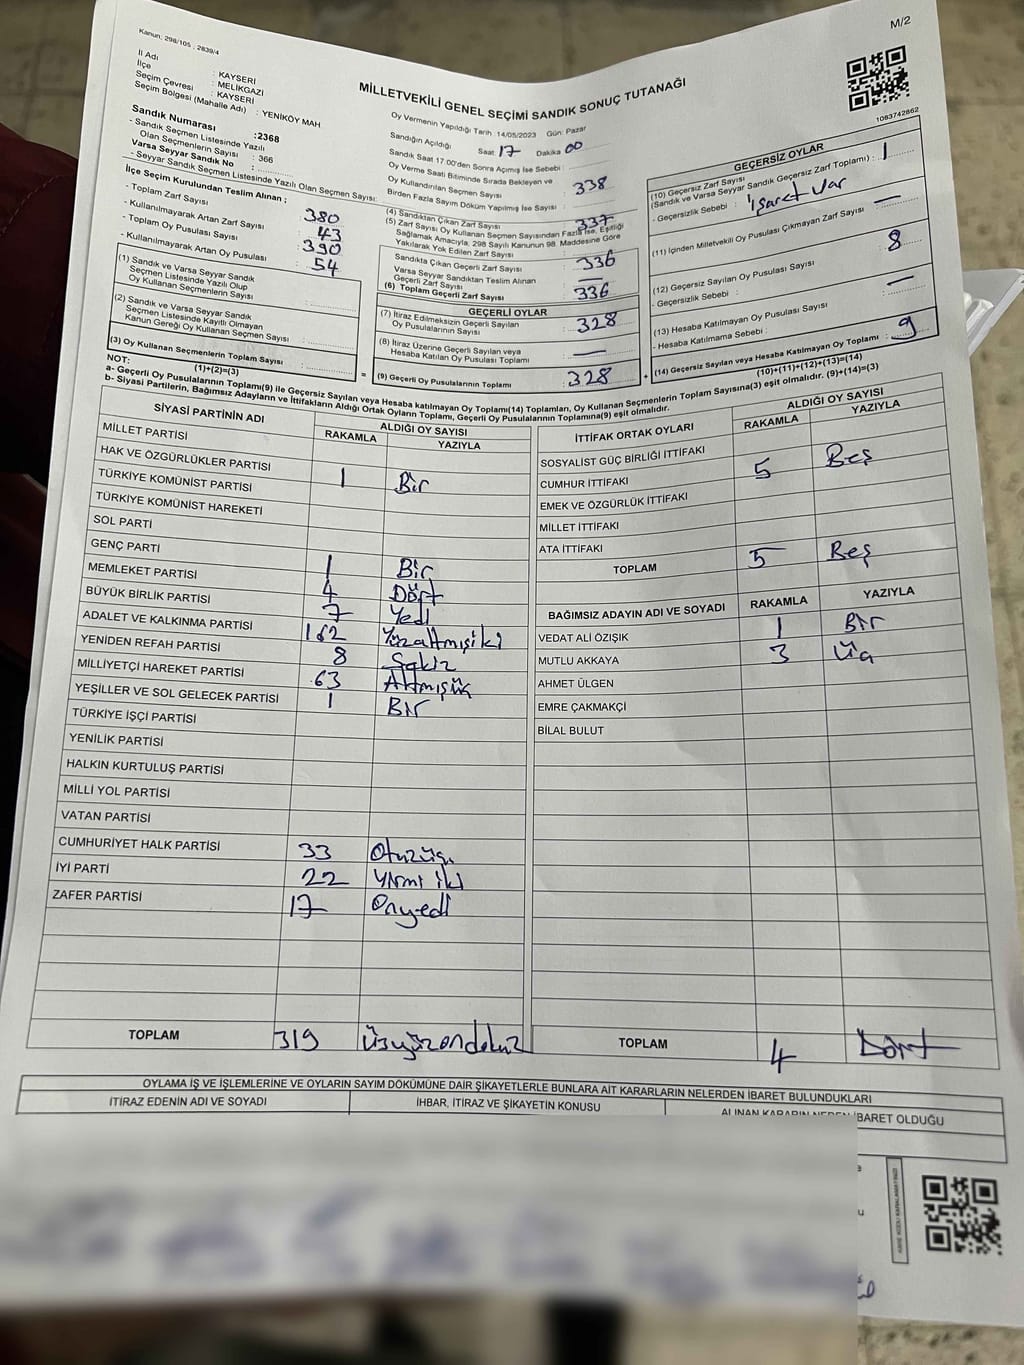 M/2
Kanun; 298/105 , 2839/4
İl Adı : KAYSERİ
İlçe : MELİKGAZİ
Seçim Çevresi : KAYSERİ
Seçim Bölgesi (Mahalle Adı) : YENİKÖY MAH
MİLLETVEKİLİ GENEL SEÇİMİ SANDIK SONUÇ TUTANAĞI
1083742862
Sandık Numarası :2368
- Sandık Seçmen Listesinde Yazılı
Olan Seçmenlerin Sayısı : 366
Varsa Seyyar Sandık No :
- Seyyar Sandık Seçmen Listesinde Yazılı Olan Seçmen Sayısı:
İlçe Seçim Kurulundan Teslim Alınan ;
- Toplam Zarf Sayısı : 380
- Kullanılmayarak Artan Zarf Sayısı : 43
- Toplam Oy Pusulası Sayısı : 390
- Kullanılmayarak Artan Oy Pusulası : 54
(1) Sandık ve Varsa Seyyar Sandık
Seçmen Listesinde Yazılı Olup
Oy Kullanan Seçmenlerin Sayısı :
(2) Sandık ve Varsa Seyyar Sandık
Seçmen Listesinde Kayıtlı Olmayan
Kanun Gereği Oy Kullanan Seçmen Sayısı :
(3) Oy Kullanan Seçmenlerin Toplam Sayısı :
(1)+(2)=(3)
Oy Vermenin Yapıldığı Tarih :14/05/2023 Gün: Pazar
Sandığın Açıldığı Saat 17 Dakika 00
Sandık Saat 17.00'den Sonra Açılmış İse Sebebi :
Oy Verme Saati Bitiminde Sırada Bekleyen ve
Oy Kullandırılan Seçmen Sayısı : 338
Birden Fazla Sayım Döküm Yapılmış İse Sayısı :
(4) Sandıktan Çıkan Zarf Sayısı : 337
(5) Zarf Sayısı Oy Kullanan Seçmen Sayısından Fazla İse, Eşitliği
Sağlamak Amacıyla, 298 Sayılı Kanunun 98. Maddesine Göre
Yakılarak Yok Edilen Zarf Sayısı :
Sandıkta Çıkan Geçerli Zarf Sayısı : 336
Varsa Seyyar Sandıktan Teslim Alınan
Geçerli Zarf Sayısı : —
(6) Toplam Geçerli Zarf Sayısı : 336
GEÇERLİ OYLAR
(7) İtiraz Edilmeksizin Geçerli Sayılan
Oy Pusulalarının Sayısı : 328
(8) İtiraz Üzerine Geçerli Sayılan veya
Hesaba Katılan Oy Pusulası Toplamı : —
= (9) Geçerli Oy Pusulalarının Toplamı : 328 +
GEÇERSİZ OYLAR
(10) Geçersiz Zarf Sayısı
(Sandık ve Varsa Seyyar Sandık Geçersiz Zarf Toplamı) : 1
- Geçersizlik Sebebi : işaret var
(11) İçinden Milletvekili Oy Pusulası Çıkmayan Zarf Sayısı : —
(12) Geçersiz Sayılan Oy Pusulası Sayısı : 8
- Geçersizlik Sebebi :
(13) Hesaba Katılmayan Oy Pusulası Sayısı : —
- Hesaba Katılmama Sebebi :
(14) Geçersiz Sayılan veya Hesaba Katılmayan Oy Toplamı : 9
(10)+(11)+(12)+(13)=(14)
NOT:
a- Geçerli Oy Pusulalarının Toplamı(9) ile Geçersiz Sayılan veya Hesaba katılmayan Oy Toplamı(14) Toplamları, Oy Kullanan Seçmenlerin Toplam Sayısına(3) eşit olmalıdır. (9)+(14)=(3)
b- Siyasi Partilerin, Bağımsız Adayların ve İttifakların Aldığı Ortak Oyların Toplamı, Geçerli Oy Pusulalarının Toplamına(9) eşit olmalıdır.
SİYASİ PARTİNİN ADI ALDIĞI OY SAYISI
RAKAMLA YAZIYLA
MİLLET PARTİSİ
HAK VE ÖZGÜRLÜKLER PARTİSİ
TÜRKİYE KOMÜNİST PARTİSİ 1 Bir
TÜRKİYE KOMÜNİST HAREKETİ
SOL PARTİ
GENÇ PARTİ
MEMLEKET PARTİSİ 1 Bir
BÜYÜK BİRLİK PARTİSİ 4 Dört
ADALET VE KALKINMA PARTİSİ 7 Yedi
YENİDEN REFAH PARTİSİ 162 Yüzaltmışiki
MİLLİYETÇİ HAREKET PARTİSİ 8 Sekiz
YEŞİLLER VE SOL GELECEK PARTİSİ 63 Altmışüç
TÜRKİYE İŞÇİ PARTİSİ 1 Bir
YENİLİK PARTİSİ
HALKIN KURTULUŞ PARTİSİ
MİLLİ YOL PARTİSİ
VATAN PARTİSİ
CUMHURİYET HALK PARTİSİ 33 Otuzüç
İYİ PARTİ 22 Yirmi iki
ZAFER PARTİSİ 17 Onyedi
TOPLAM 319 üçyüzondokuz
İTTİFAK ORTAK OYLARI ALDIĞI OY SAYISI
RAKAMLA YAZIYLA
SOSYALİST GÜÇ BİRLİĞİ İTTİFAKI
CUMHUR İTTİFAKI 5 Beş
EMEK VE ÖZGÜRLÜK İTTİFAKI
MİLLET İTTİFAKI
ATA İTTİFAKI
TOPLAM 5 Beş
BAĞIMSIZ ADAYIN ADI VE SOYADI RAKAMLA YAZIYLA
VEDAT ALİ ÖZIŞIK 1 Bir
MUTLU AKKAYA 3 Üç
AHMET ÜLGEN
EMRE ÇAKMAKÇİ
BİLAL BULUT
TOPLAM 4 Dört
OYLAMA İŞ VE İŞLEMLERİNE VE OYLARIN SAYIM DÖKÜMÜNE DAİR ŞİKAYETLERLE BUNLARA AİT KARARLARIN NELERDEN İBARET BULUNDUKLARI
İTİRAZ EDENİN ADI VE SOYADI İHBAR, İTİRAZ VE ŞİKAYETİN KONUSU ALINAN KARARIN NEDEN İBARET OLDUĞU